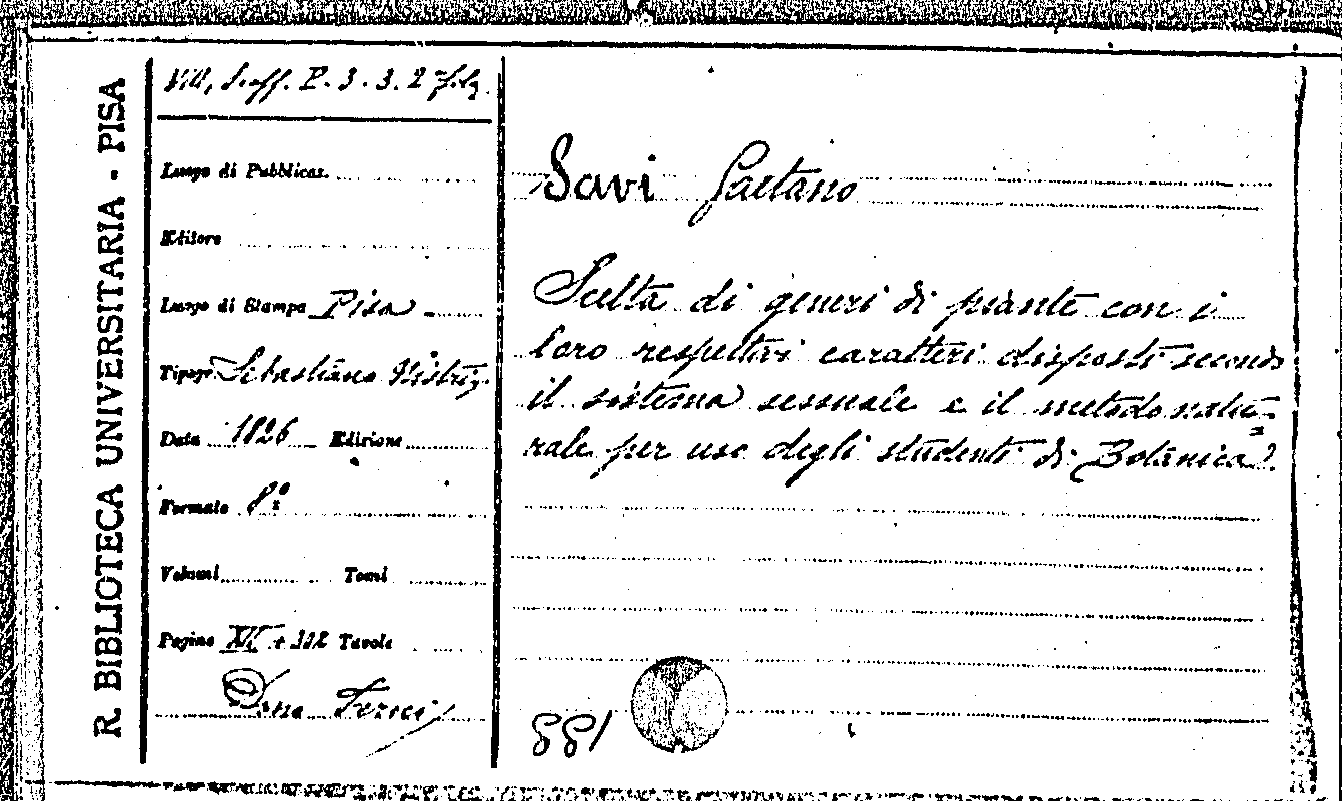 R. BIBLIOTECA UNIVERSITARIA - PISA
Soff. P. 3. 3. 2
Luogo di Pubblicaz.
Editore
Luogo di Stampa Pisa
Tipogr. Sebastiano Nistri
Data 1826 Edizione
Formato 8º
Volumi Tomi
Pagine XII + 112 Tavole
Savi Gaetano
Scelta di generi di piante con i
loro respettivi caratteri disposti secondo
il sistema sessuale e il metodo natu=
rale per uso degli studenti di Botanica.
881